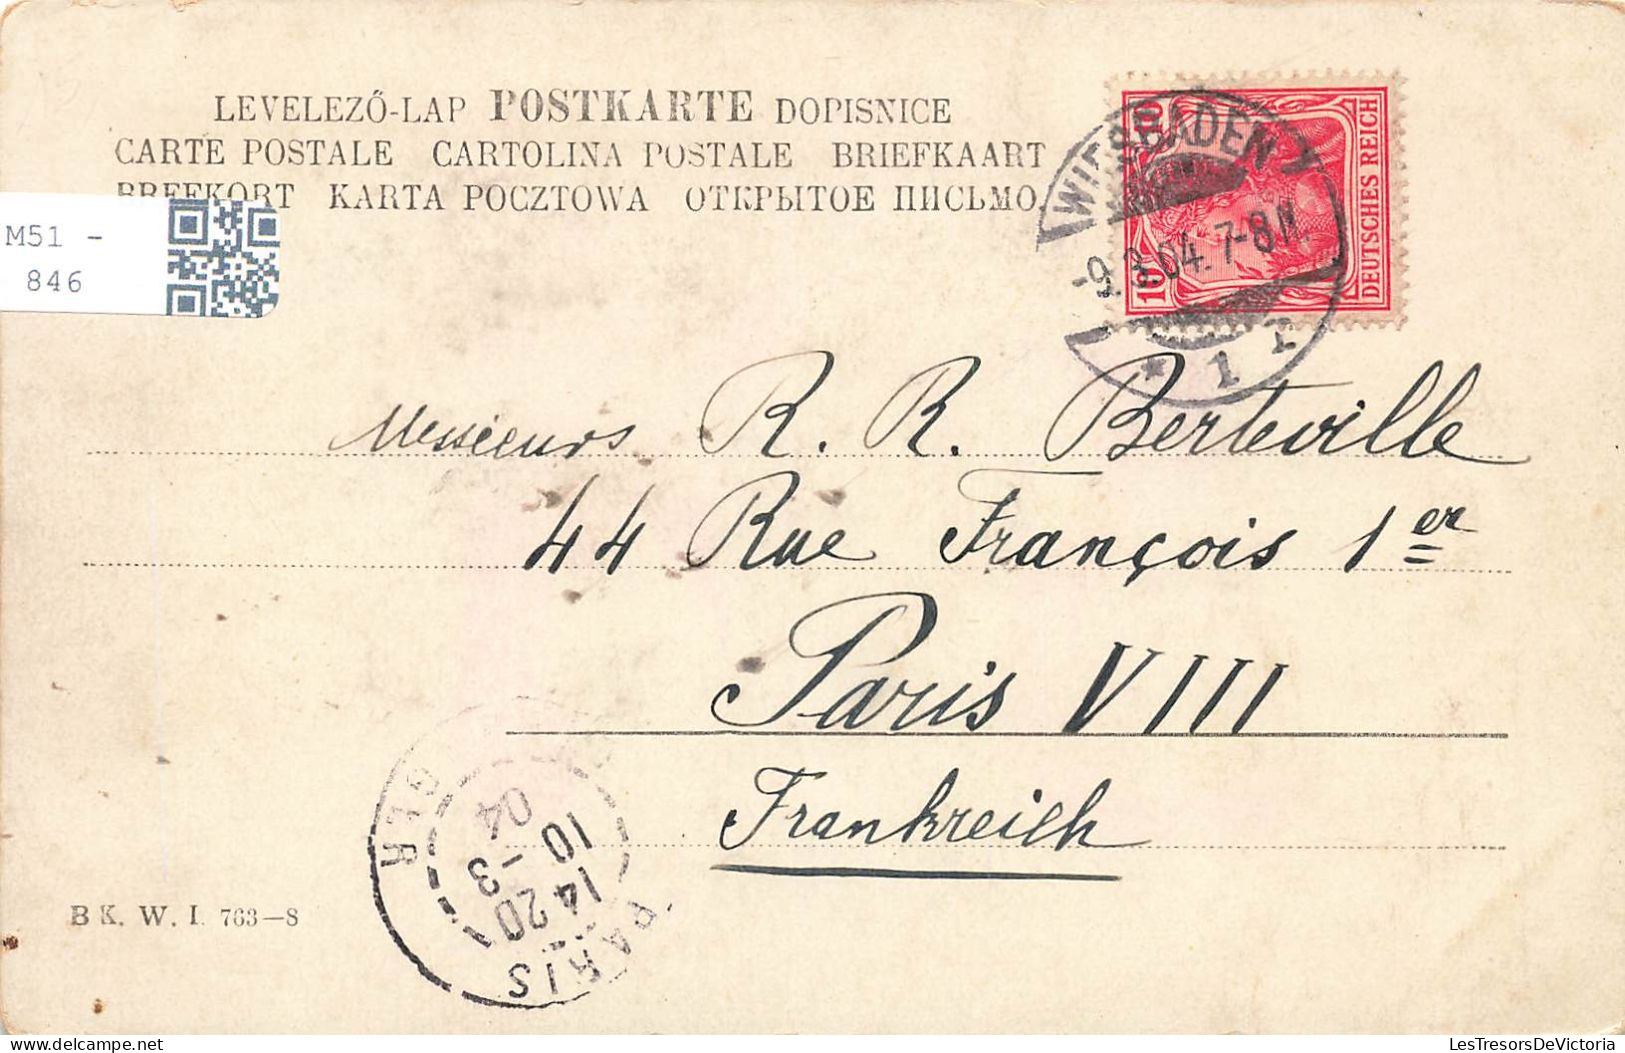 LEVELEZŐ-LAP POSTKARTE DOPISNICE
CARTE POSTALE CARTOLINA POSTALE BRIEFKAART
BREFKORT KARTA POCZTOWA ОТКРЫТОЕ ПИСЬМО.
M51 -
846
WIESBADEN
-9.3.04. 7-8 N.
* 1 r
10
10
DEUTSCHES REICH
Messieurs R. R. Berteville
44 Rue François 1er
Paris VIII
Frankreich
PARIS
14 20
10 -3
04
B.K.W.I. 763-8
LesTresorsDeVictoria